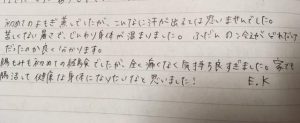 初めてのよもぎ蒸しでしたが、こんなに汗が出るとは思いませんでした。
苦しくない暑さで、じんわり身体が温まりました。ふだん の 冷えがどれだけ
だったのか良く分かります。
腸もみも初めての経験でしたが、全く痛くなく気持ち良すぎました。家でも
腸活して健康な身体になりたいなと思いました！ E.K